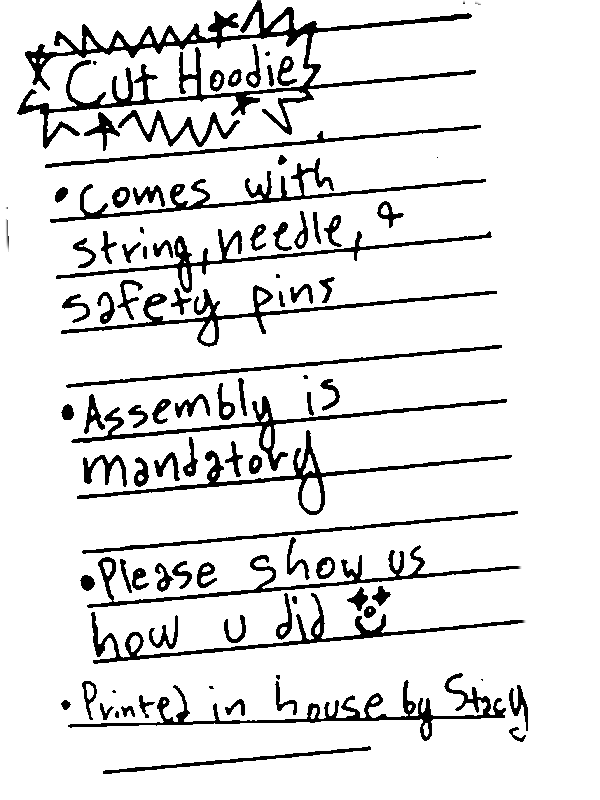 Cut Hoodie
• Comes with
string, needle, &
safety pins
• Assembly is
mandatory
• Please show us
how u did
• Printed in house by Stacy